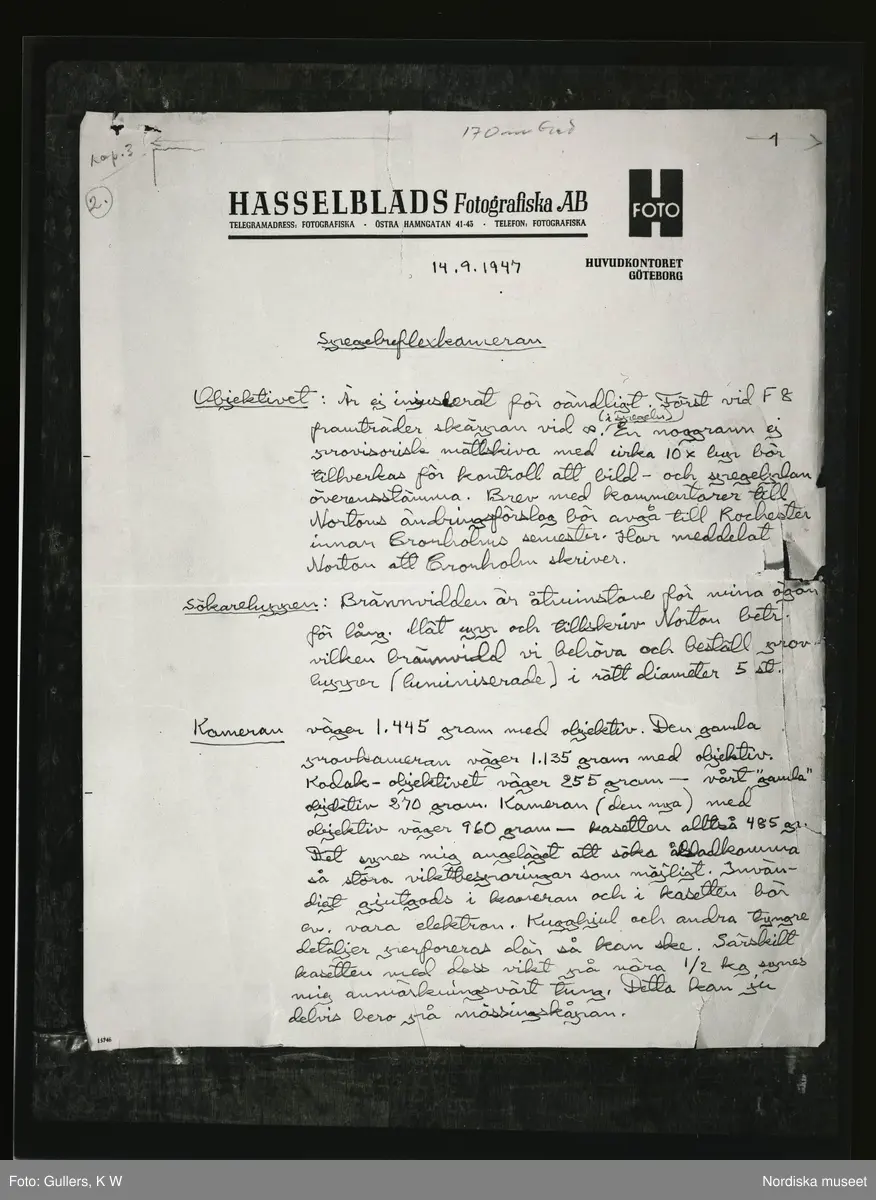 170 mm bred
1
Kap. 3
2.
HASSELBLADS Fotografiska AB
TELEGRAMADRESS: FOTOGRAFISKA · ÖSTRA HAMNGATAN 41-45 · TELEFON: FOTOGRAFISKA
H
FOTO
HUVUDKONTORET
GÖTEBORG
14.9.1947
Spegelreflexkameran
Objektivet: Är ej injusterat för oändligt. Först vid F 8
framträder skärpan vid ∞. (i spegeln) En noggrann ej
provisorisk mattskiva med cirka 10 x lupp bör
tillverkas för kontroll att bild- och spegelplan
överensstämma. Brev med kommentarer till
Nortons ändringsförslag bör avgå till Rochester
innan Cronholms semester. Har meddelat
Norton att Cronholm skriver.
Sökareluppen: Brännvidden är åtminstone för mina ögon
för lång. Mät upp och tillskriv Norton betr.
vilken brännvidd vi behöva och beställ prov-
lupper (luminiserade) i rätt diameter 5 st.
Kameran väger 1.445 gram med objektiv. Den gamla
provkameran väger 1.135 gram med objektiv.
Kodak-objektivet väger 255 gram — vårt "gamla"
objektiv 270 gram. Kameran (den nya) med
objektiv väger 960 gram — kasetten alltså 485 gr.
Det synes mig angeläget att söka åstadkomma
så stora viktbesparingar som möjligt. Invän-
digt gjutgods i kameran och i kasetten bör
ev. vara elektron. Kugghjul och andra tyngre
detaljer perforeras där så kan ske. Särskilt
kasetten med dess vikt på nära 1/2 kg synes
mig anmärkningsvärt tung. Detta kan ju
delvis bero på mässingskåpan.
Foto: Gullers, K W
Nordiska museet